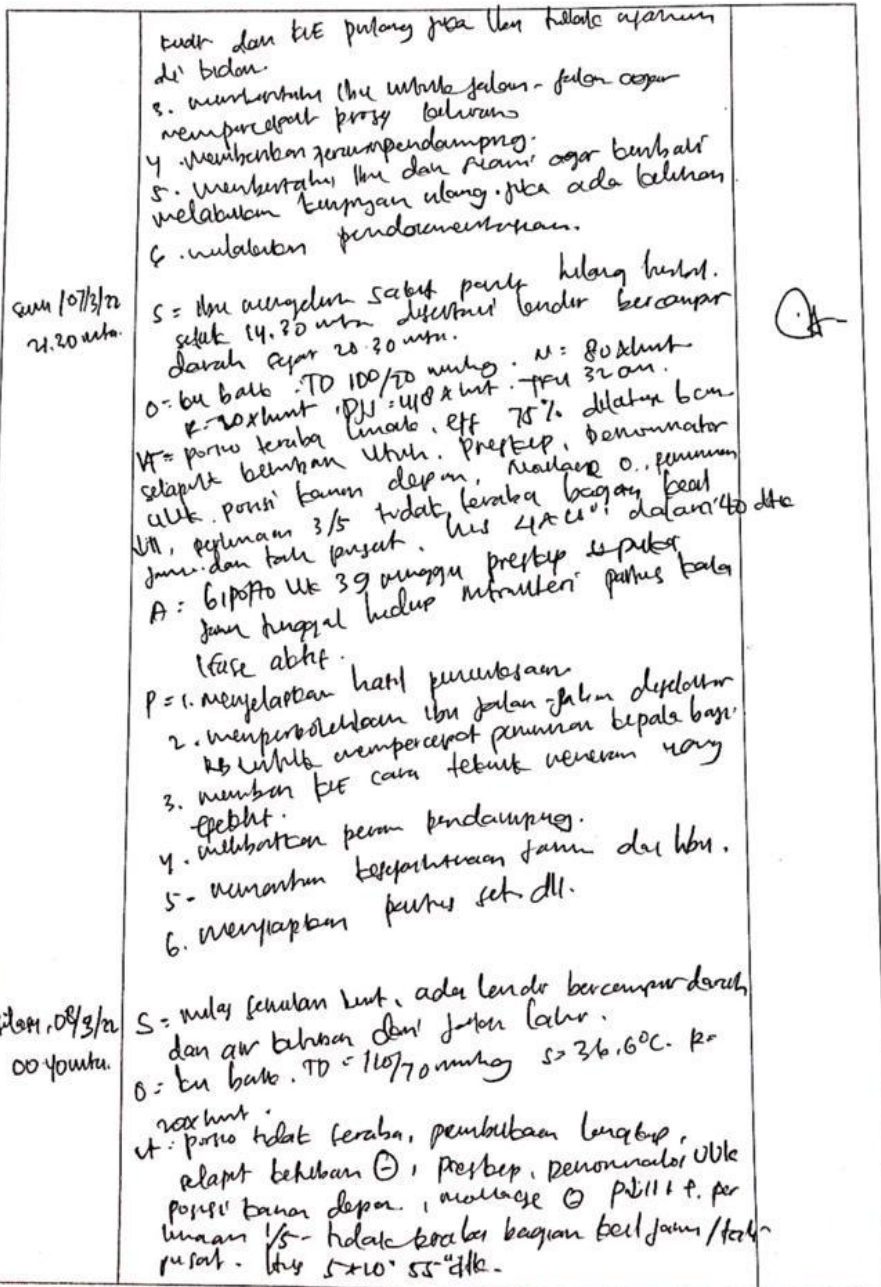 dan KIE pulang jika ibu
di bidan.
3. memberitahu ibu untuk jalan-jalan agar
mempercepat proses
4. memberikan pendamping.
5. memberitahu ibu dan suami agar kembali
melakukan kunjungan ulang. jika ada keluhan
6. melakukan pendokumentasian.
/07/3/22
21.20 wita.
S = ibu mengeluh sakit perut hilang
sejak 14.30 wita disertai lendir bercampur
darah sejak 20.30 wita.
O = ku baik. TD 100/70 mmhg. N = 80x/mnt
R = 20x/mnt. TFU 32 cm.
VT = porsio teraba lunak, eff 75%
selaput ketuban utuh. preskep, denominator
UUK. posisi kanan depan, 0.,
perlimaan 3/5 tidak teraba bagian kecil
janin dan tali pusat. his dalam 40 dtk
A: G1P0A0 UK 39 minggu preskep
janin tunggal hidup intrauteri partus kala
I fase aktif.
P = 1. menjelaskan hasil pemeriksaan
2. memperbolehkan ibu jalan-jalan
untuk mempercepat penurunan kepala bayi.
3. memberi KIE cara teknik meneran yang
efektif.
4. melibatkan peran pendamping.
5- memantau kesejahteraan janin dan ibu.
6. menyiapkan partus set dll.
, 08/3/22
00.40 wita.
S = mules semakin kuat, ada lendir bercampur darah
dan air ketuban dari jalan lahir.
O = ku baik. TD = 110/70 mmhg S = 36,6°C. R =
20x/mnt.
VT: porsio tidak teraba, pembukaan lengkap,
selaput ketuban ⊖, preskep, denominator UUK
posisi kanan depan., ⊖ per
limaan 1/5 - tidak teraba bagian kecil janin/tali
pusat. His 5x10' 55" dtk.